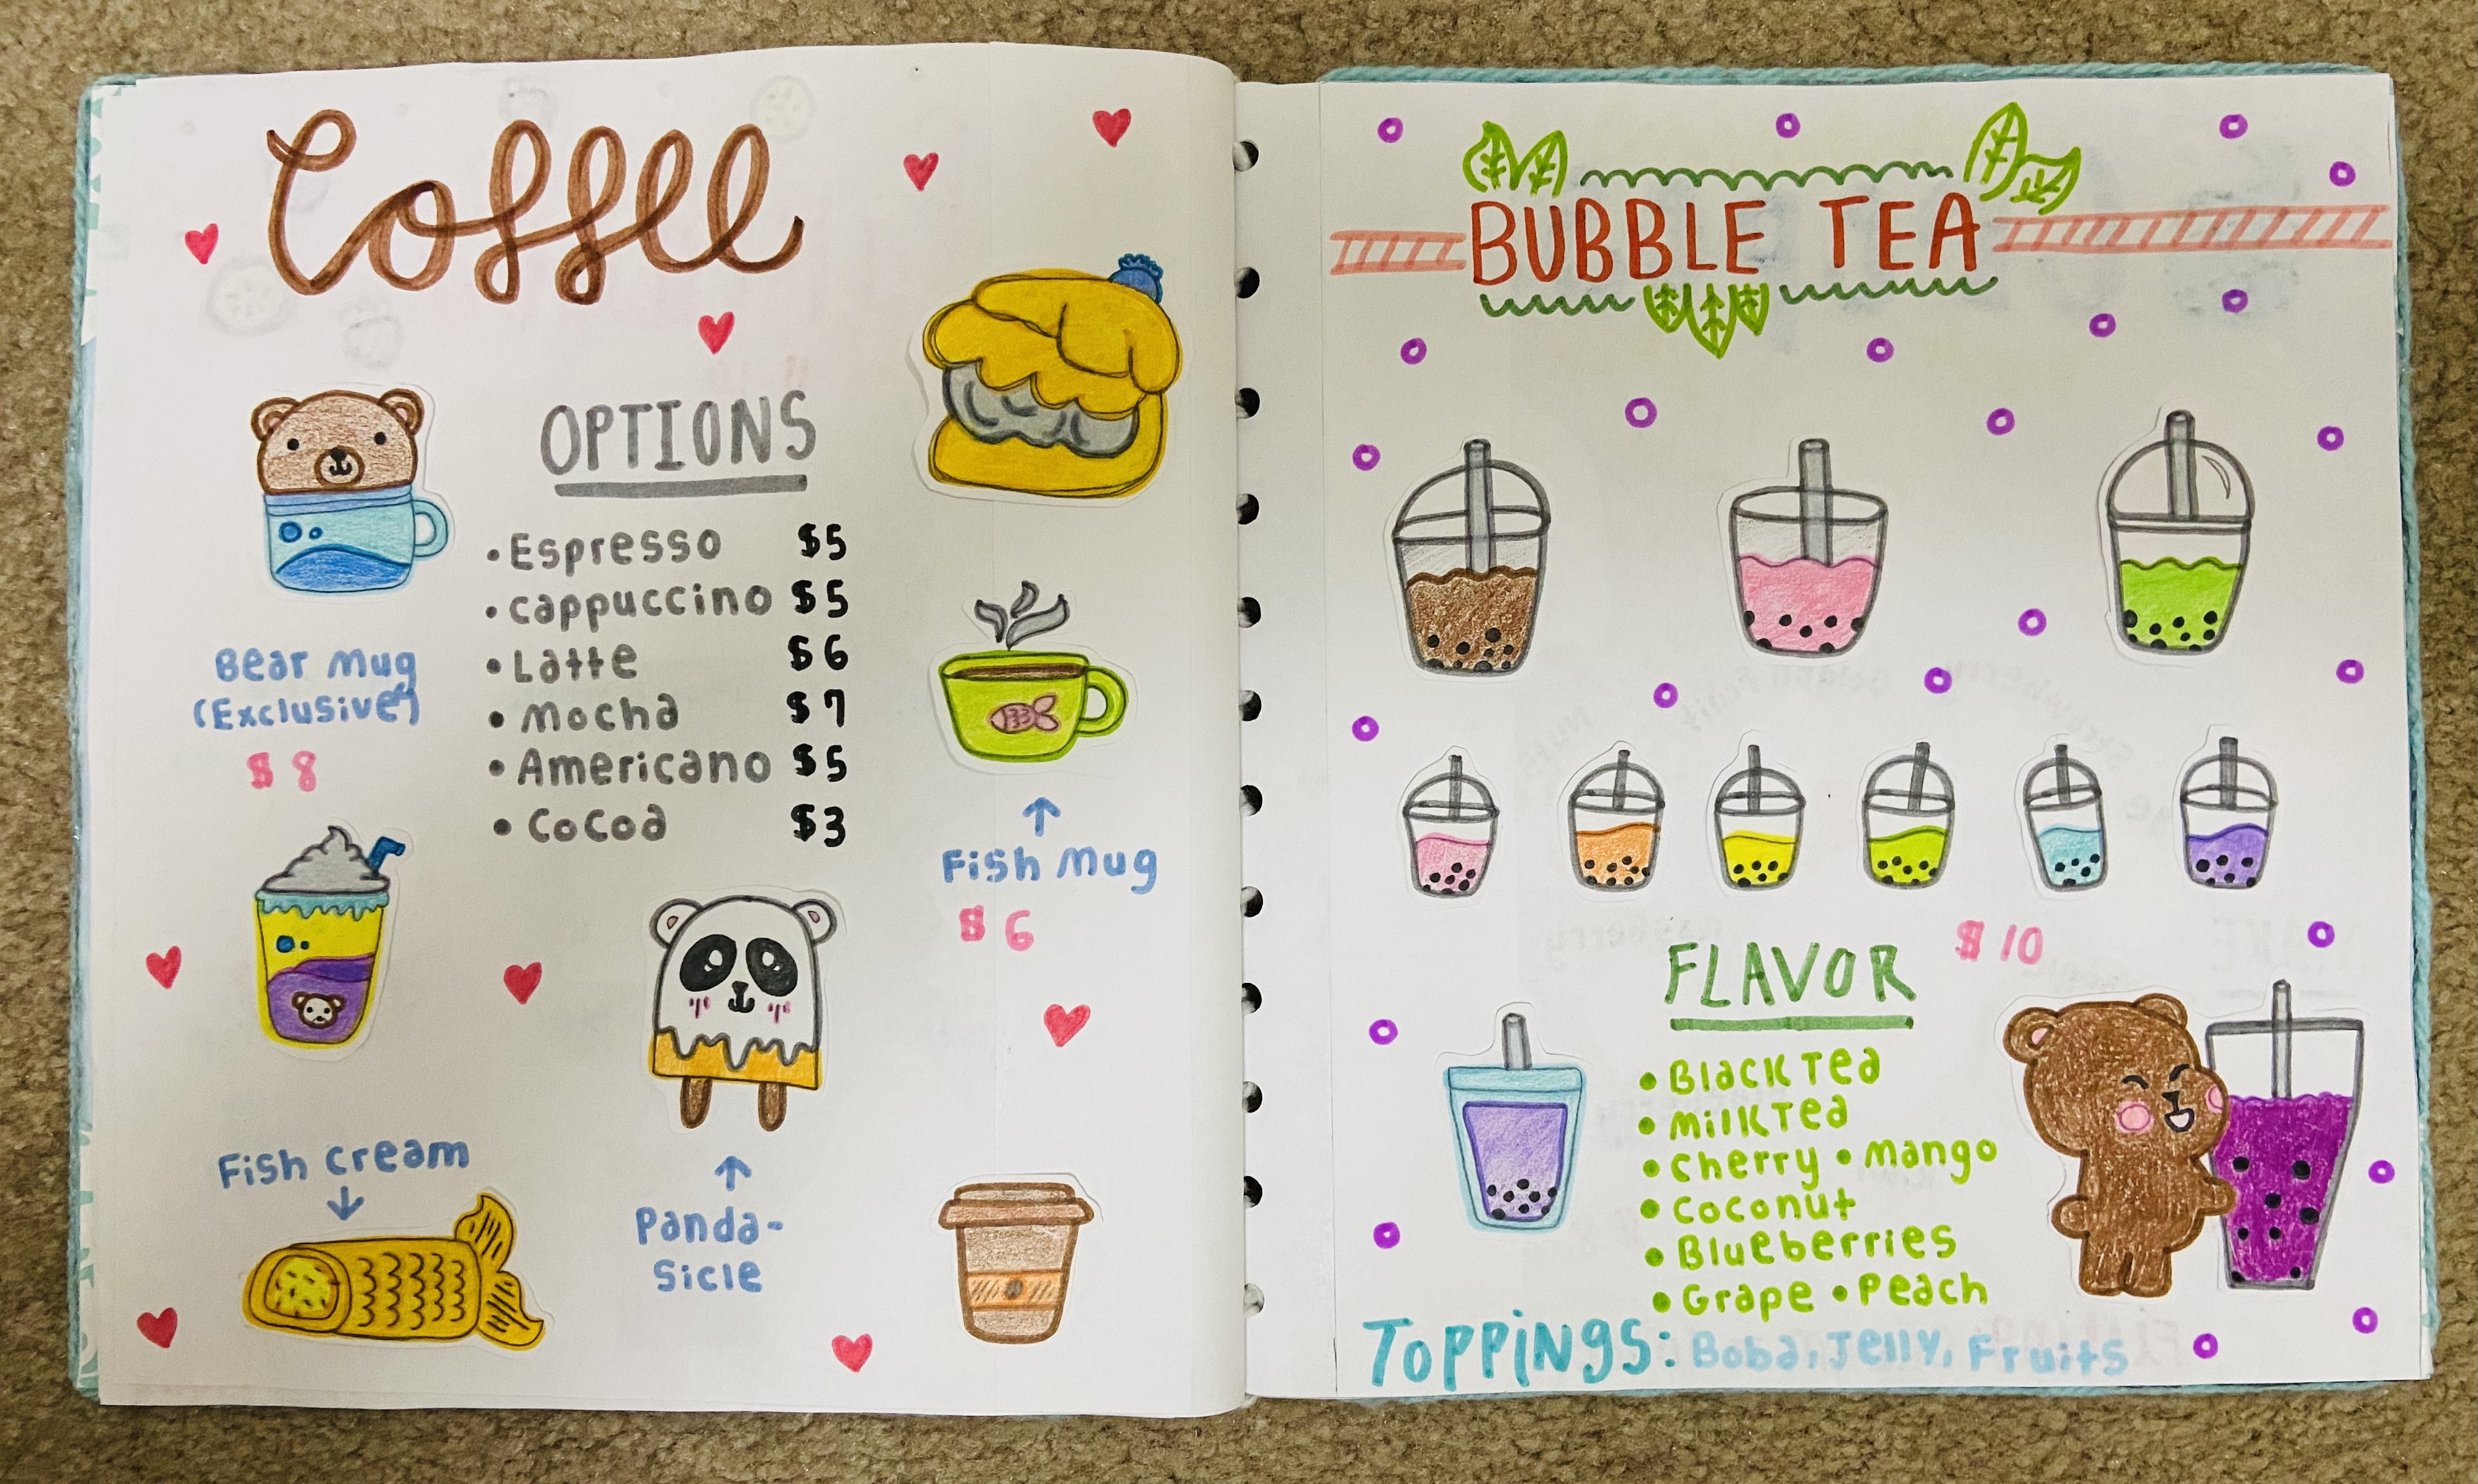 Coffee
OPTIONS
• Espresso $5
• cappuccino $5
• Latte $6
• Mocha $7
• Americano $5
• Cocoa $3
Bear Mug
(Exclusive)
$8
Fish Mug
$6
Fish cream
Panda-
Sicle
BUBBLE TEA
$10
FLAVOR
• Black Tea
• Milk Tea
• Cherry • Mango
• Coconut
• Blueberries
• Grape • Peach
TOPPiNgS: Boba, Jelly, Fruits